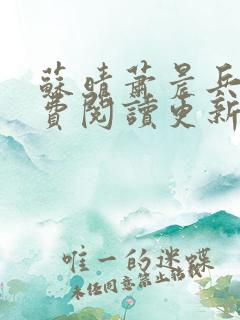 蘇晴蕭晨兵
費閱讀更新
唯一的迷蝶
未经同意禁止转载